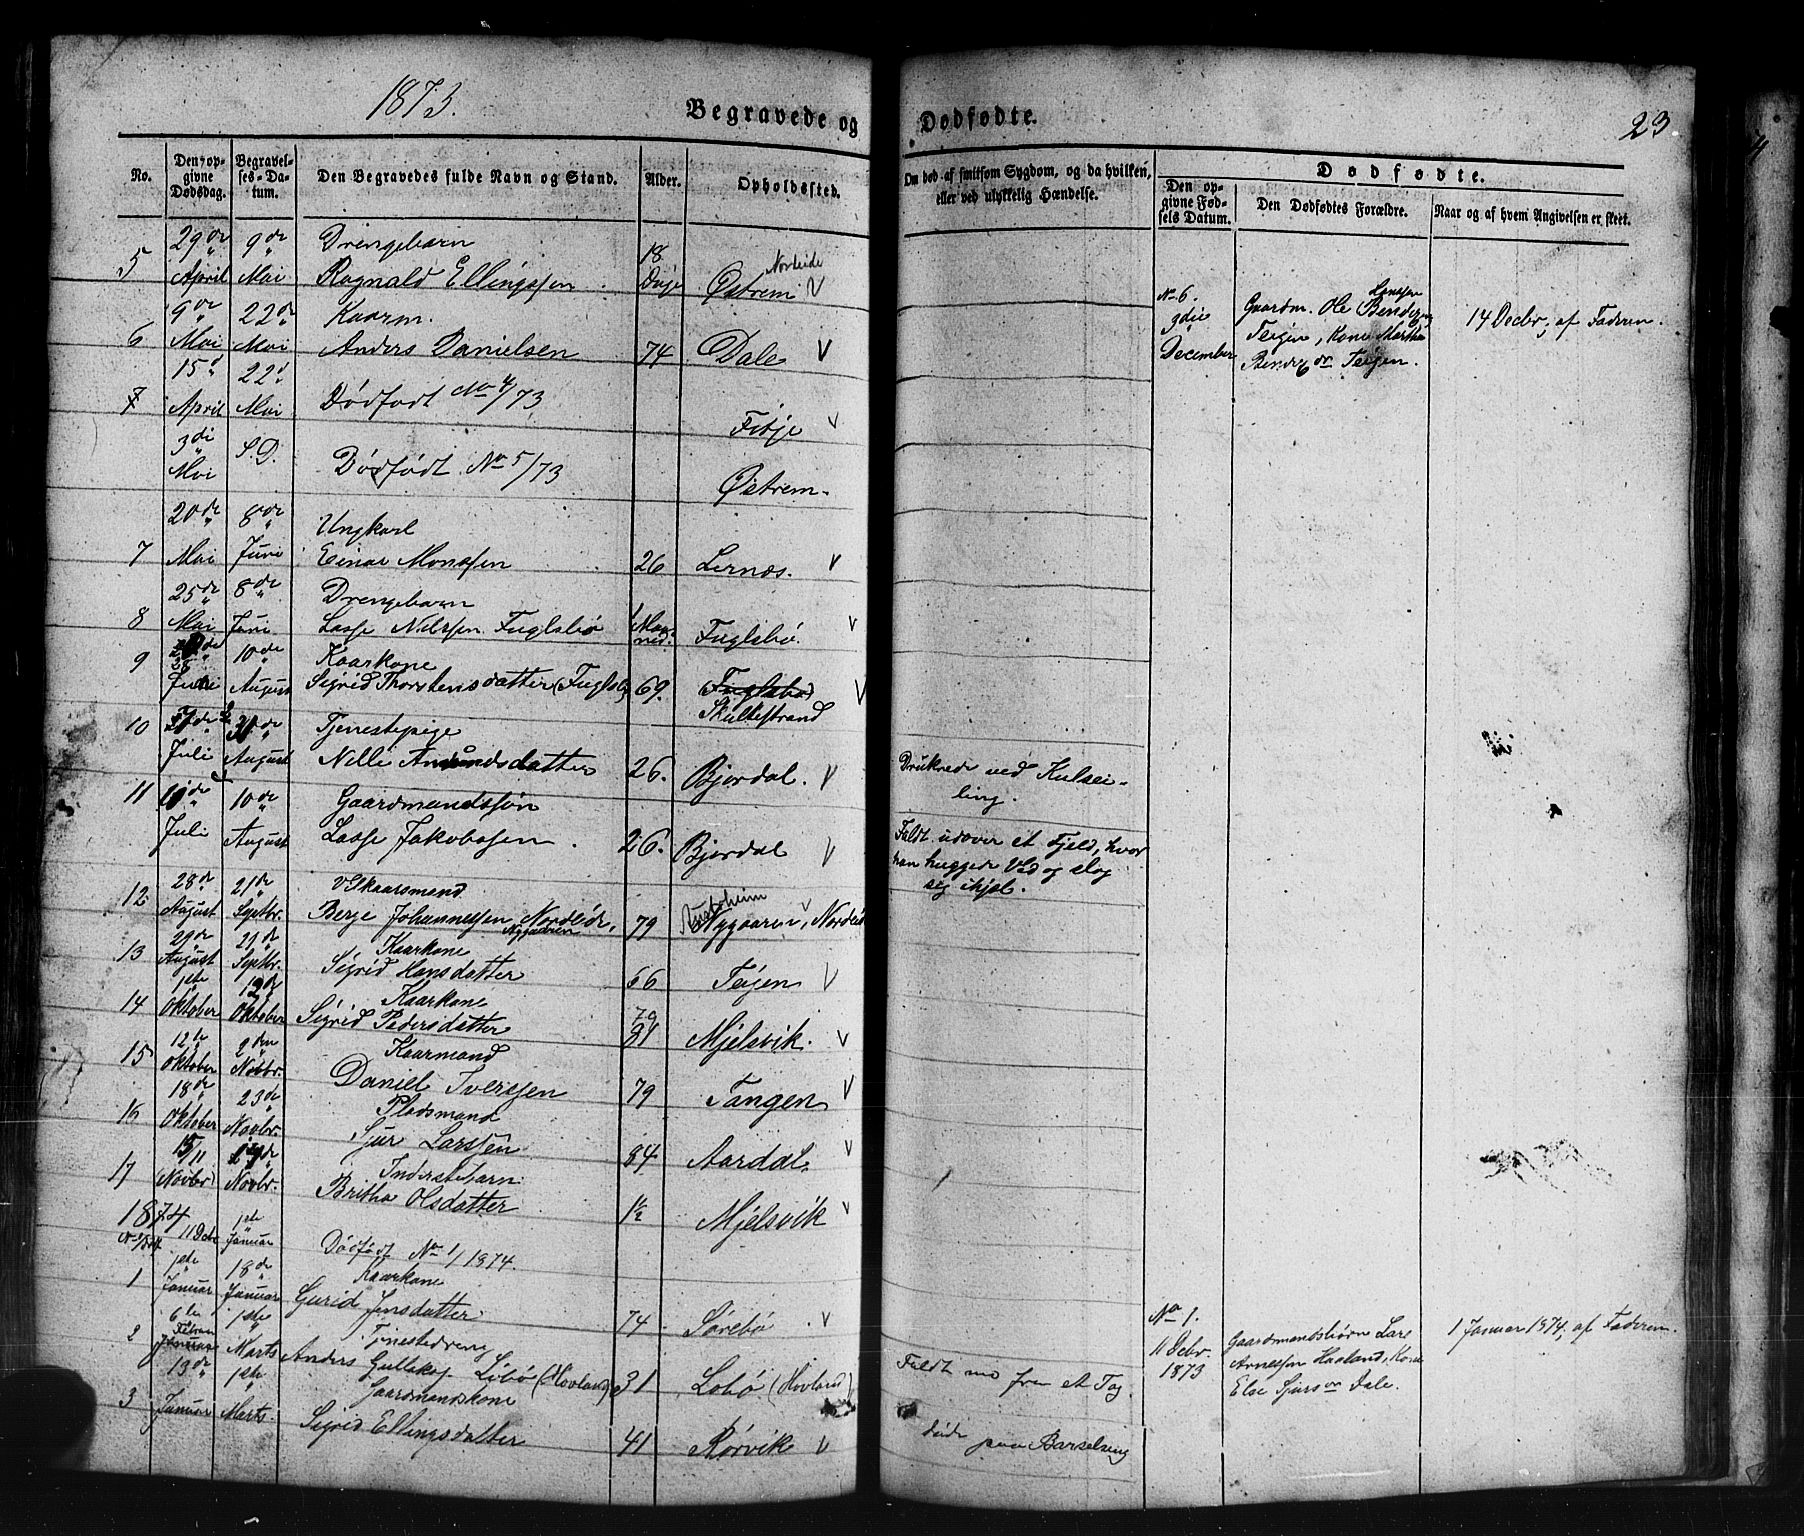 1873.
Begravede og Dødfødte.
23
No.
Den opgivne Dødsdag.
Begravelses-Datum.
Den Begravedes fulde Navn og Stand.
Alder.
Opholdssted.
Om død af smitsom Sygdom, og da hvilken, eller ved ulykkelig Hændelse.
Dødfødte.
Den opgivne Fødsels Datum.
Den Dødfødtes Forældre.
Naar og af hvem Angivelsen er skeet.
5 29de April 9de Mai Drengebarn Ragnald Ellingssen 18 Dage Nordeide Østrem
6 9de Mai 22de Mai Kaarm. Anders Danielsen 74 Dale
7 15d April 22d Mai Dødfødt No 4/73 Fibje
3di Mai S.D. Dødfødt No 5/73 Østrem
7 20de Mai 8de Juni Ungkarl Einar Monssen 26 Lernæs.
8 25de Mai 8de Juni Drengebarn Lasse Nilssen Fuglsbø 1 Maaned. Fuglsbø.
9 10de August Kaarkone Sigrid Thorstensdatter (Fuglsb 69. (Fuglsbø) Skultestrand
10 Juli August Tjenestepige Nille Amundsdatter 26. Bjordal. Druknede ved Kulseiling.
11 Juli 10de August Gaardmandssøn Lasse Jakobssen. 26. Bjordal Faldt udover et Fjeld, hvor han huggede Ved og slog sig ihjel.
12 28de August 21de Septbr. Kaarmand Berge Johannessen Nordeide, Nygaaren 79 Nygaaren, Nordeid
13 29de August 21de Septbr. Kaarkone Sigrid Hansdatter 66 Teigen
14 1ste Oktober 12de Oktober Kaarkone Sigrid Pedersdatter 79 81 Mjelsvik.
15 12te Oktober 2den Novbr. Kaarmand Daniel Iverssen 79 Tangen
16 18de Oktober 23de Novbr. Pladsmand Sjur Larssen 84 Aardal
17 15/11 (Novbr) Novbr. Inderstebarn Britha Olsdatter 1½ Mjelsvik
1874
11 Debr 1ste Januar Dødfødt No 1/1874.
1 1ste Januar 18de Januar Kaarkone Gurid Jensdatter 74 Sørebø
2 6te Februar 1ste Marts Tjenestedreng Anders Gullaksen Lobø (Hovland) 31 Lobø (Hovland) Faldt ned fra et Tag
3 13de Januar 1ste Marts. Gaardmandskone Sigrid Ellingsdatter 41 Rørvik døde paa Barselseng
No 6. 3die December Gaardm. Ole Hanssen Berge Teigen, Kone Martha Teigen. 14 Decbr, af Faderen.
No 1. 11 Debr. 1873 Gaardmandsbørn Lars Arnessen Haaland, Kone Else Sjursdr Dale. 1 Januar 1874, af Faderen